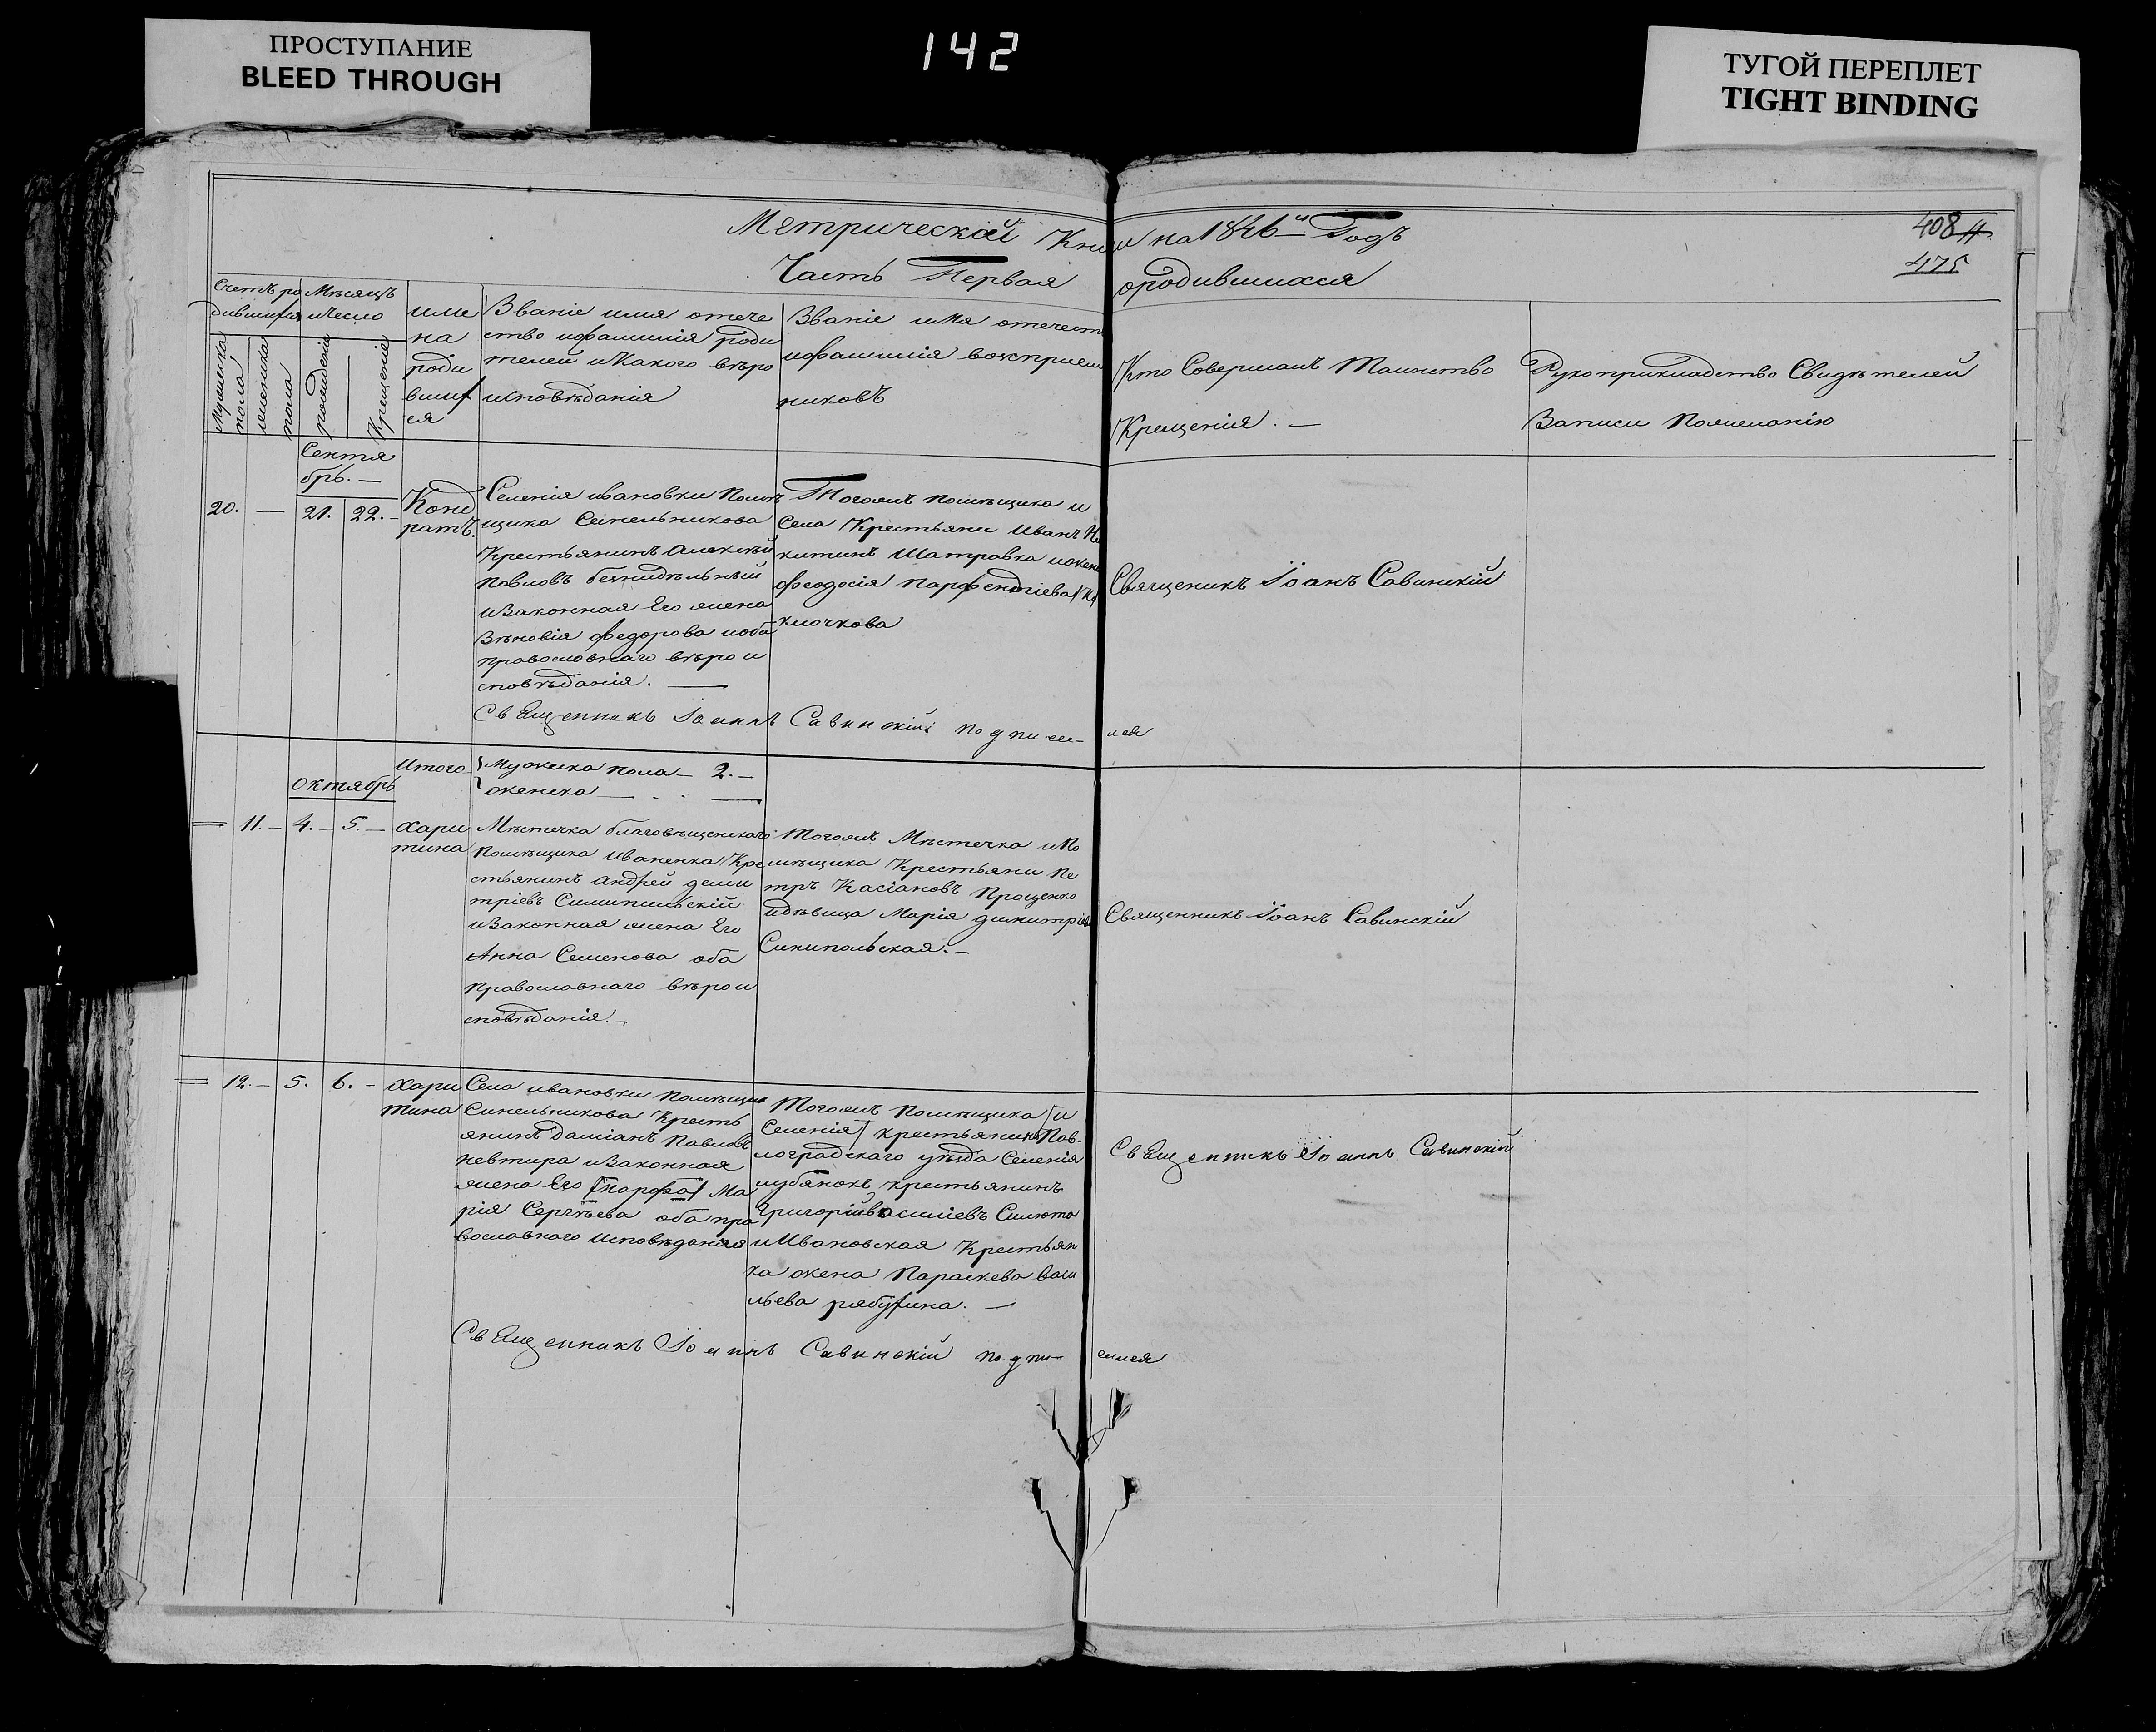 ПРОСТУПАНИЕ
BLEED THROUGH
142
ТУГОЙ ПЕРЕПЛЕТ
TIGHT BINDING
Метрической Книги на 1846й Годъ
408
475
Часть Первая ородившихся
Счетъ ро
дившихся
Мѣсяцъ
ичесло
мужеска
пола
женска
пола
рожденія
Крещенія
име
на
роди
вших
ся
Званіе имя отече
ство ифамилія роди
телей иКакого вѣро
исповѣданія
Званіе имя отечест
ифамилія воспріем
никовъ
Кто Совершалъ Таинство
Крещенія. —
Рукоприкладство Свидѣтелей
Записи Пожеланію
Сентя
брь. —
20. — 21. 22. —
Конд
ратъ.
Селенія ивановки Помѣ
щика Синельникова
Крестьянинъ Алексѣй
Павловъ
иЗаконная Его жена
Зѣновія Федорова иоба
православнаго вѣрои
сповѣданія. —
Тогожъ помѣщика и
Села Крестьяни Иванъ Ни
китинъ Шатравка ижена
Феодосія Парфентіева
клочкова
Священикъ Іоанъ Савинскій
СвЯщенникъ Іоаннъ Савинскій подписа- лся
Итого
Мужеска пола — 2. —
женска — . . —
октябрь
11. — 4. — 5. —
хари
тина
Мѣстечка благовѣщенскаго
Помѣщика Иваненка Кре
стьянинъ Андрей дими
тріевъ
иЗаконная жена Его
Анна Семенова оба
Православнаго вѣрои
сповѣданія. —
Тогожъ Мѣстечка иПо
мѣщика Крестьяни Пе
тръ Касіановъ Проценко
идѣвица Марія димитріева
Синипольская. —
Священникъ Іоанъ Савинскій
12. — 5. 6. —
хари
тина
Села ивановки помѣщика
Синельникова Кресть
янинъ даміанъ Павловъ
невтира иЗаконная
жена Его [Марфа] Ма
рія Сергѣева оба пра
вославнаго Исповѣданія
Тогожъ помѣщика [и
Селенія] крестьянинъ Пав-
лоградскаго уѣзда Селенія
крестьянинъ
Григорій василіевъ Силюта
иИвановская Крестьян
ка жена Параскева Васи
льева рябухина. —
СвЯщенникъ Іоаннъ Савинскій
СвЯщенникъ Іоаннъ Савинскій подпи- сался